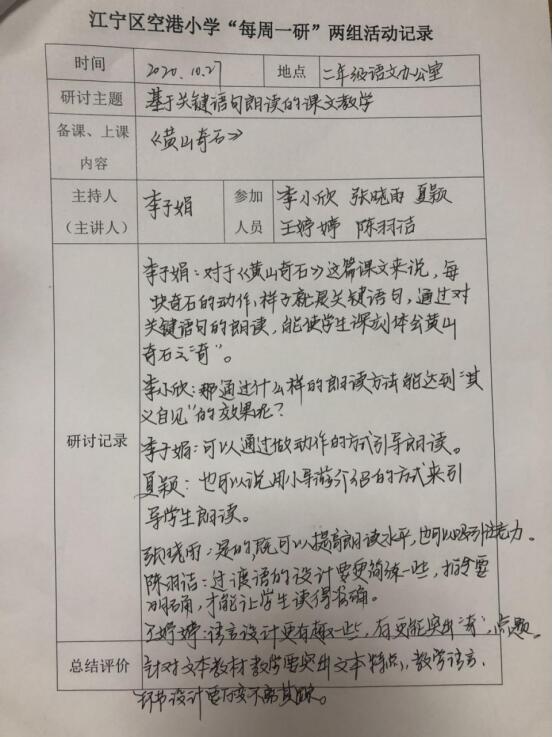 江宁区空港小学“每周一研”两组活动记录
时间 2020.10.27 地点 二年级语文办公室
研讨主题 基于关键语句朗读的课文教学
备课、上课内容 《黄山奇石》
主持人（主讲人） 李子娟 参加人员 李小欣 张晓雨 夏颖
王婷婷 陈羽洁
研讨记录
李子娟：对于《黄山奇石》这篇课文来说，每
块奇石的动作，样子就是关键语句，通过对
关键语句的朗读，能使学生深刻体会黄山
奇石之“奇”。
李小欣：那通过什么样的朗读方法能达到“其
义自见”的效果呢？
李子娟：可以通过做动作的方式引导朗读。
夏颖：也可以说用小导游介绍的方式来引
导学生朗读。
张晓雨：是的既可以提高朗读水平，也可以吸引注意力。
陈羽洁：过渡语的设计要更简练一些，指令要
明确，才能让学生读得准确。
王婷婷：语言设计更有趣一些，有更能突出“奇”，点题。
总结评价 针对文本教材教学要突出文本特点，教学语言、
环节设计要万变不离其踪。